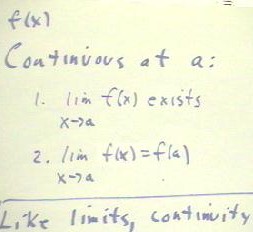 f(x)
Continuous at a:
1. lim f(x) exists
x→a
2. lim f(x) = f(a)
x→a
Like limits, continuity